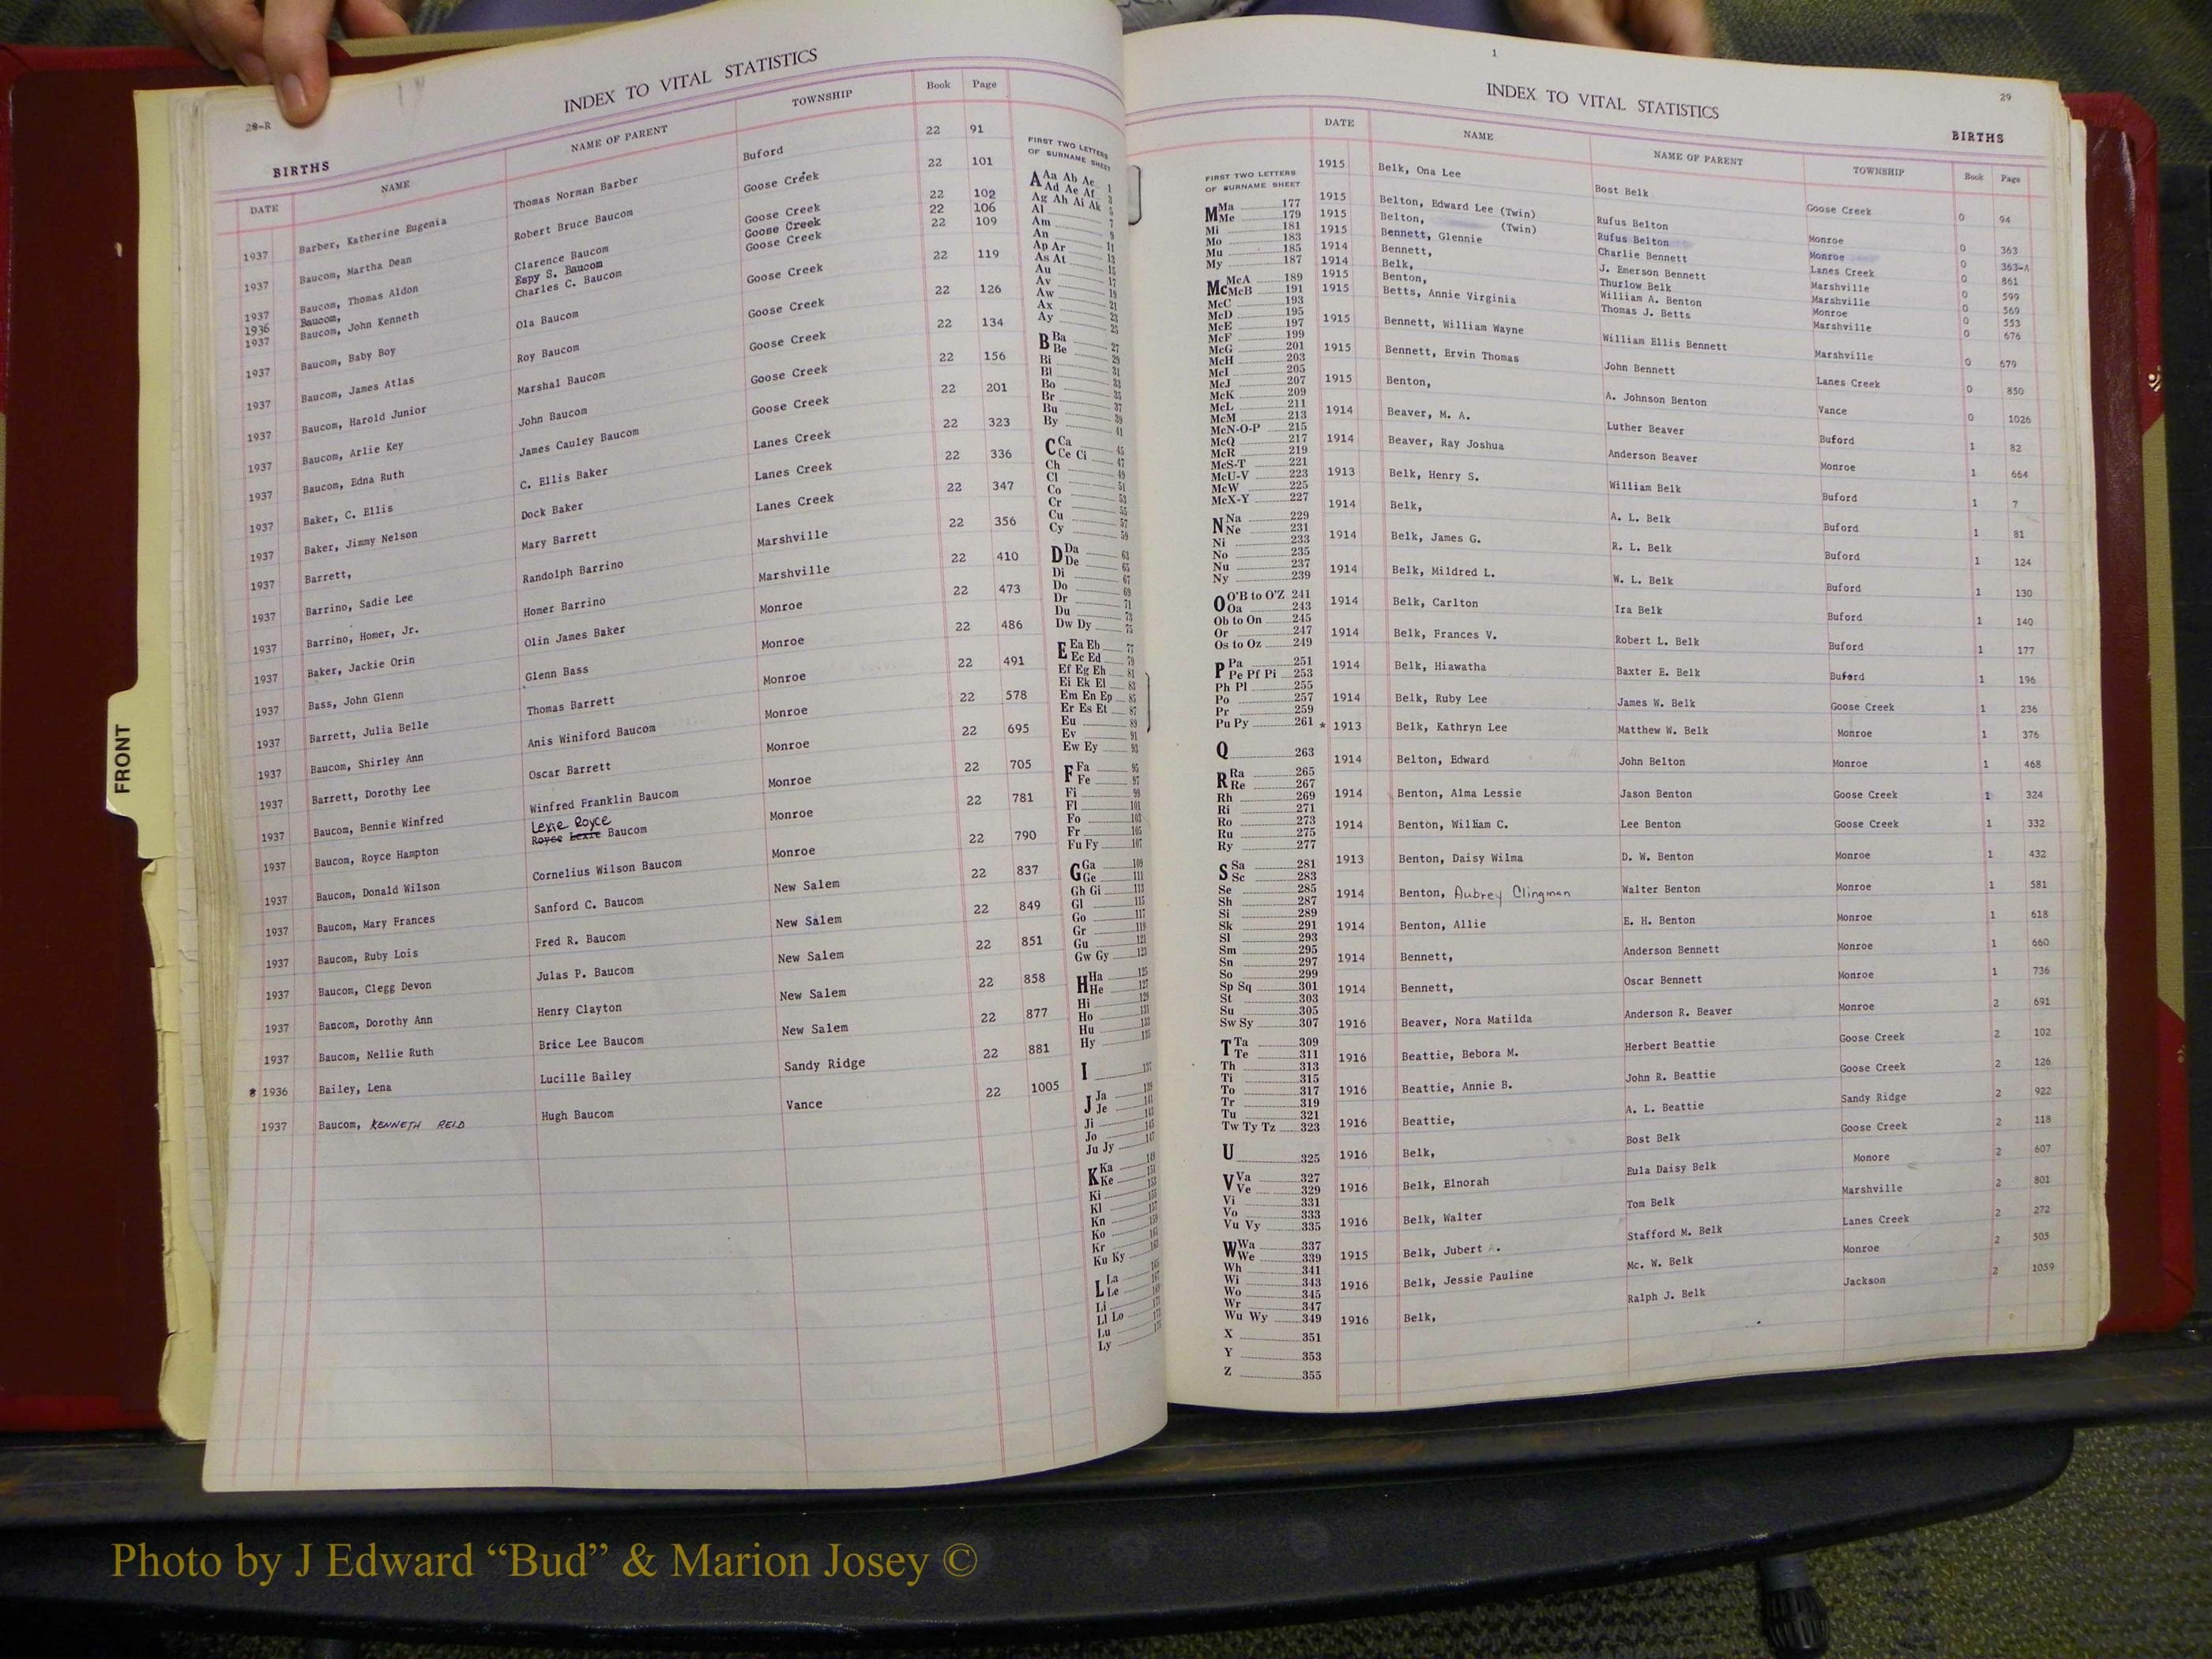 28-R
INDEX TO VITAL STATISTICS
BIRTHS
DATE NAME NAME OF PARENT TOWNSHIP Book Page
1937 Barber, Katherine Eugenia Thomas Norman Barber Buford 22 91
1937 Baucom, Martha Dean Robert Bruce Baucom Goose Creek 22 101
1937 Baucom, Thomas Aldon Clarence Baucom Goose Creek 22 102
1936 Baucom, Espy S. Baucom Goose Creek 22 106
1937 Baucom, John Kenneth Charles C. Baucom Goose Creek 22 109
1937 Baucom, Baby Boy Ola Baucom Goose Creek 22 119
1937 Baucom, James Atlas Roy Baucom Goose Creek 22 126
1937 Baucom, Harold Junior Marshal Baucom Goose Creek 22 134
1937 Baucom, Arlie Key John Baucom Goose Creek 22 156
1937 Baucom, Edna Ruth James Cauley Baucom Goose Creek 22 201
1937 Baker, C. Ellis C. Ellis Baker Lanes Creek 22 323
1937 Baker, Jimmy Nelson Dock Baker Lanes Creek 22 336
1937 Barrett, Mary Barrett Lanes Creek 22 347
1937 Barrino, Sadie Lee Randolph Barrino Marshville 22 356
1937 Barrino, Homer, Jr. Homer Barrino Marshville 22 410
1937 Baker, Jackie Orin Olin James Baker Monroe 22 473
1937 Bass, John Glenn Glenn Bass Monroe 22 486
1937 Barrett, Julia Belle Thomas Barrett Monroe 22 491
1937 Baucom, Shirley Ann Anis Winiford Baucom Monroe 22 578
1937 Barrett, Dorothy Lee Oscar Barrett Monroe 22 695
1937 Baucom, Bennie Winfred Winfred Franklin Baucom Monroe 22 705
Lexie Royce
1937 Baucom, Royce Hampton Royce Lexie Baucom Monroe 22 781
1937 Baucom, Donald Wilson Cornelius Wilson Baucom Monroe 22 790
1937 Baucom, Mary Frances Sanford C. Baucom New Salem 22 837
1937 Baucom, Ruby Lois Fred R. Baucom New Salem 22 849
1937 Baucom, Clegg Devon Julas P. Baucom New Salem 22 851
1937 Baucom, Dorothy Ann Henry Clayton New Salem 22 858
1937 Baucom, Nellie Ruth Brice Lee Baucom New Salem 22 877
* 1936 Bailey, Lena Lucille Bailey Sandy Ridge 22 881
1937 Baucom, KENNETH REID Hugh Baucom Vance 22 1005
FRONT
FIRST TWO LETTERS
OF SURNAME SHEET
A Aa Ab Ac 1
Ad Ae Af 3
Ag Ah Ai Ak 5
Al 7
Am 9
An 11
Ap Ar 13
As At 15
Au 17
Av 19
Aw 21
Ax 23
Ay 25
B Ba 27
Be 29
Bi 31
Bl 33
Bo 35
Br 37
Bu 39
By 41
C Ca 45
Ce Ci 47
Ch 49
Cl 51
Co 53
Cr 55
Cu 57
Cy 59
D Da 63
De 65
Di 67
Do 69
Dr 71
Du 73
Dw Dy 75
E Ea Eb 77
Ec Ed 79
Ef Eg Eh 81
Ei Ek El 83
Em En Ep 85
Er Es Et 87
Eu 89
Ev 91
Ew Ey 93
F Fa 95
Fe 97
Fi 99
Fl 101
Fo 103
Fr 105
Fu Fy 107
G Ga 109
Ge 111
Gh Gi 113
Gl 115
Go 117
Gr 119
Gu 121
Gw Gy 123
H Ha 125
He 127
Hi 129
Ho 131
Hu 133
Hy 135
I 137
J Ja 139
Je 141
Ji 143
Jo 145
Ju Jy 147
K Ka 149
Ke 151
Ki 153
Kl 155
Kn 157
Ko 159
Kr 161
Ku Ky 163
L La 165
Le 167
Li 169
Ll Lo 171
Lu
Ly
1
INDEX TO VITAL STATISTICS
29
BIRTHS
FIRST TWO LETTERS
OF SURNAME SHEET
M Ma 177
Me 179
Mi 181
Mo 183
Mu 185
My 187
Mc McA 189
McB 191
McC 193
McD 195
McE 197
McF 199
McG 201
McH 203
McI 205
McJ 207
McK 209
McL 211
McM 213
McN-O-P 215
McQ 217
McR 219
McS-T 221
McU-V 223
McW 225
McX-Y 227
N Na 229
Ne 231
Ni 233
No 235
Nu 237
Ny 239
O O'B to O'Z 241
Oa 243
Ob to On 245
Or 247
Os to Oz 249
P Pa 251
Pe Pf Pi 253
Ph Pl 255
Po 257
Pr 259
Pu Py 261
Q 263
R Ra 265
Re 267
Rh 269
Ri 271
Ro 273
Ru 275
Ry 277
S Sa 281
Sc 283
Se 285
Sh 287
Si 289
Sk 291
Sl 293
Sm 295
Sn 297
So 299
Sp Sq 301
St 303
Su 305
Sw Sy 307
T Ta 309
Te 311
Th 313
Ti 315
To 317
Tr 319
Tu 321
Tw Ty Tz 323
U 325
V Va 327
Ve 329
Vi 331
Vo 333
Vu Vy 335
W Wa 337
We 339
Wh 341
Wi 343
Wo 345
Wr 347
Wu Wy 349
X 351
Y 353
Z 355
DATE NAME NAME OF PARENT TOWNSHIP Book Page
1915 Belk, Ona Lee Bost Belk Goose Creek 0 94
1915 Belton, Edward Lee (Twin) Rufus Belton Monroe 0 363
1915 Belton, (Twin) Rufus Belton Monroe 0 363-A
1915 Bennett, Glennie Charlie Bennett Lanes Creek 0 861
1914 Bennett, J. Emerson Bennett Marshville 0 599
1914 Belk, Thurlow Belk Marshville 0 569
1915 Benton, William A. Benton Monroe 0 553
1915 Betts, Annie Virginia Thomas J. Betts Marshville 0 676
1915 Bennett, William Wayne William Ellis Bennett Marshville 0 679
1915 Bennett, Ervin Thomas John Bennett Lanes Creek 0 850
1915 Benton, A. Johnson Benton Vance 0 1026
1914 Beaver, M. A. Luther Beaver Buford 1 82
1914 Beaver, Ray Joshua Anderson Beaver Monroe 1 664
1913 Belk, Henry S. William Belk Buford 1 7
1914 Belk, A. L. Belk Buford 1 81
1914 Belk, James G. R. L. Belk Buford 1 124
1914 Belk, Mildred L. W. L. Belk Buford 1 130
1914 Belk, Carlton Ira Belk Buford 1 140
1914 Belk, Frances V. Robert L. Belk Buford 1 177
1914 Belk, Hiawatha Baxter E. Belk Buford 1 196
1914 Belk, Ruby Lee James W. Belk Goose Creek 1 236
* 1913 Belk, Kathryn Lee Matthew W. Belk Monroe 1 376
1914 Belton, Edward John Belton Monroe 1 468
1914 Benton, Alma Lessie Jason Benton Goose Creek 1 324
1914 Benton, William C. Lee Benton Goose Creek 1 332
1913 Benton, Daisy Wilma D. W. Benton Monroe 1 432
1914 Benton, Aubrey Clingman Walter Benton Monroe 1 581
1914 Benton, Allie E. H. Benton Monroe 1 618
1914 Bennett, Anderson Bennett Monroe 1 660
1914 Bennett, Oscar Bennett Monroe 1 736
1916 Beaver, Nora Matilda Anderson R. Beaver Monroe 2 691
1916 Beattie, Bebora M. Herbert Beattie Goose Creek 2 102
1916 Beattie, Annie B. John R. Beattie Goose Creek 2 126
1916 Beattie, A. L. Beattie Sandy Ridge 2 922
1916 Belk, Bost Belk Goose Creek 2 118
1916 Belk, Elnorah Eula Daisy Belk Monore 2 607
1916 Belk, Walter Tom Belk Marshville 2 801
1915 Belk, Jubert A. Stafford M. Belk Lanes Creek 2 272
1916 Belk, Jessie Pauline Mc. W. Belk Monroe 2 505
1916 Belk, Ralph J. Belk Jackson 2 1059
Photo by J Edward “Bud” & Marion Josey ©